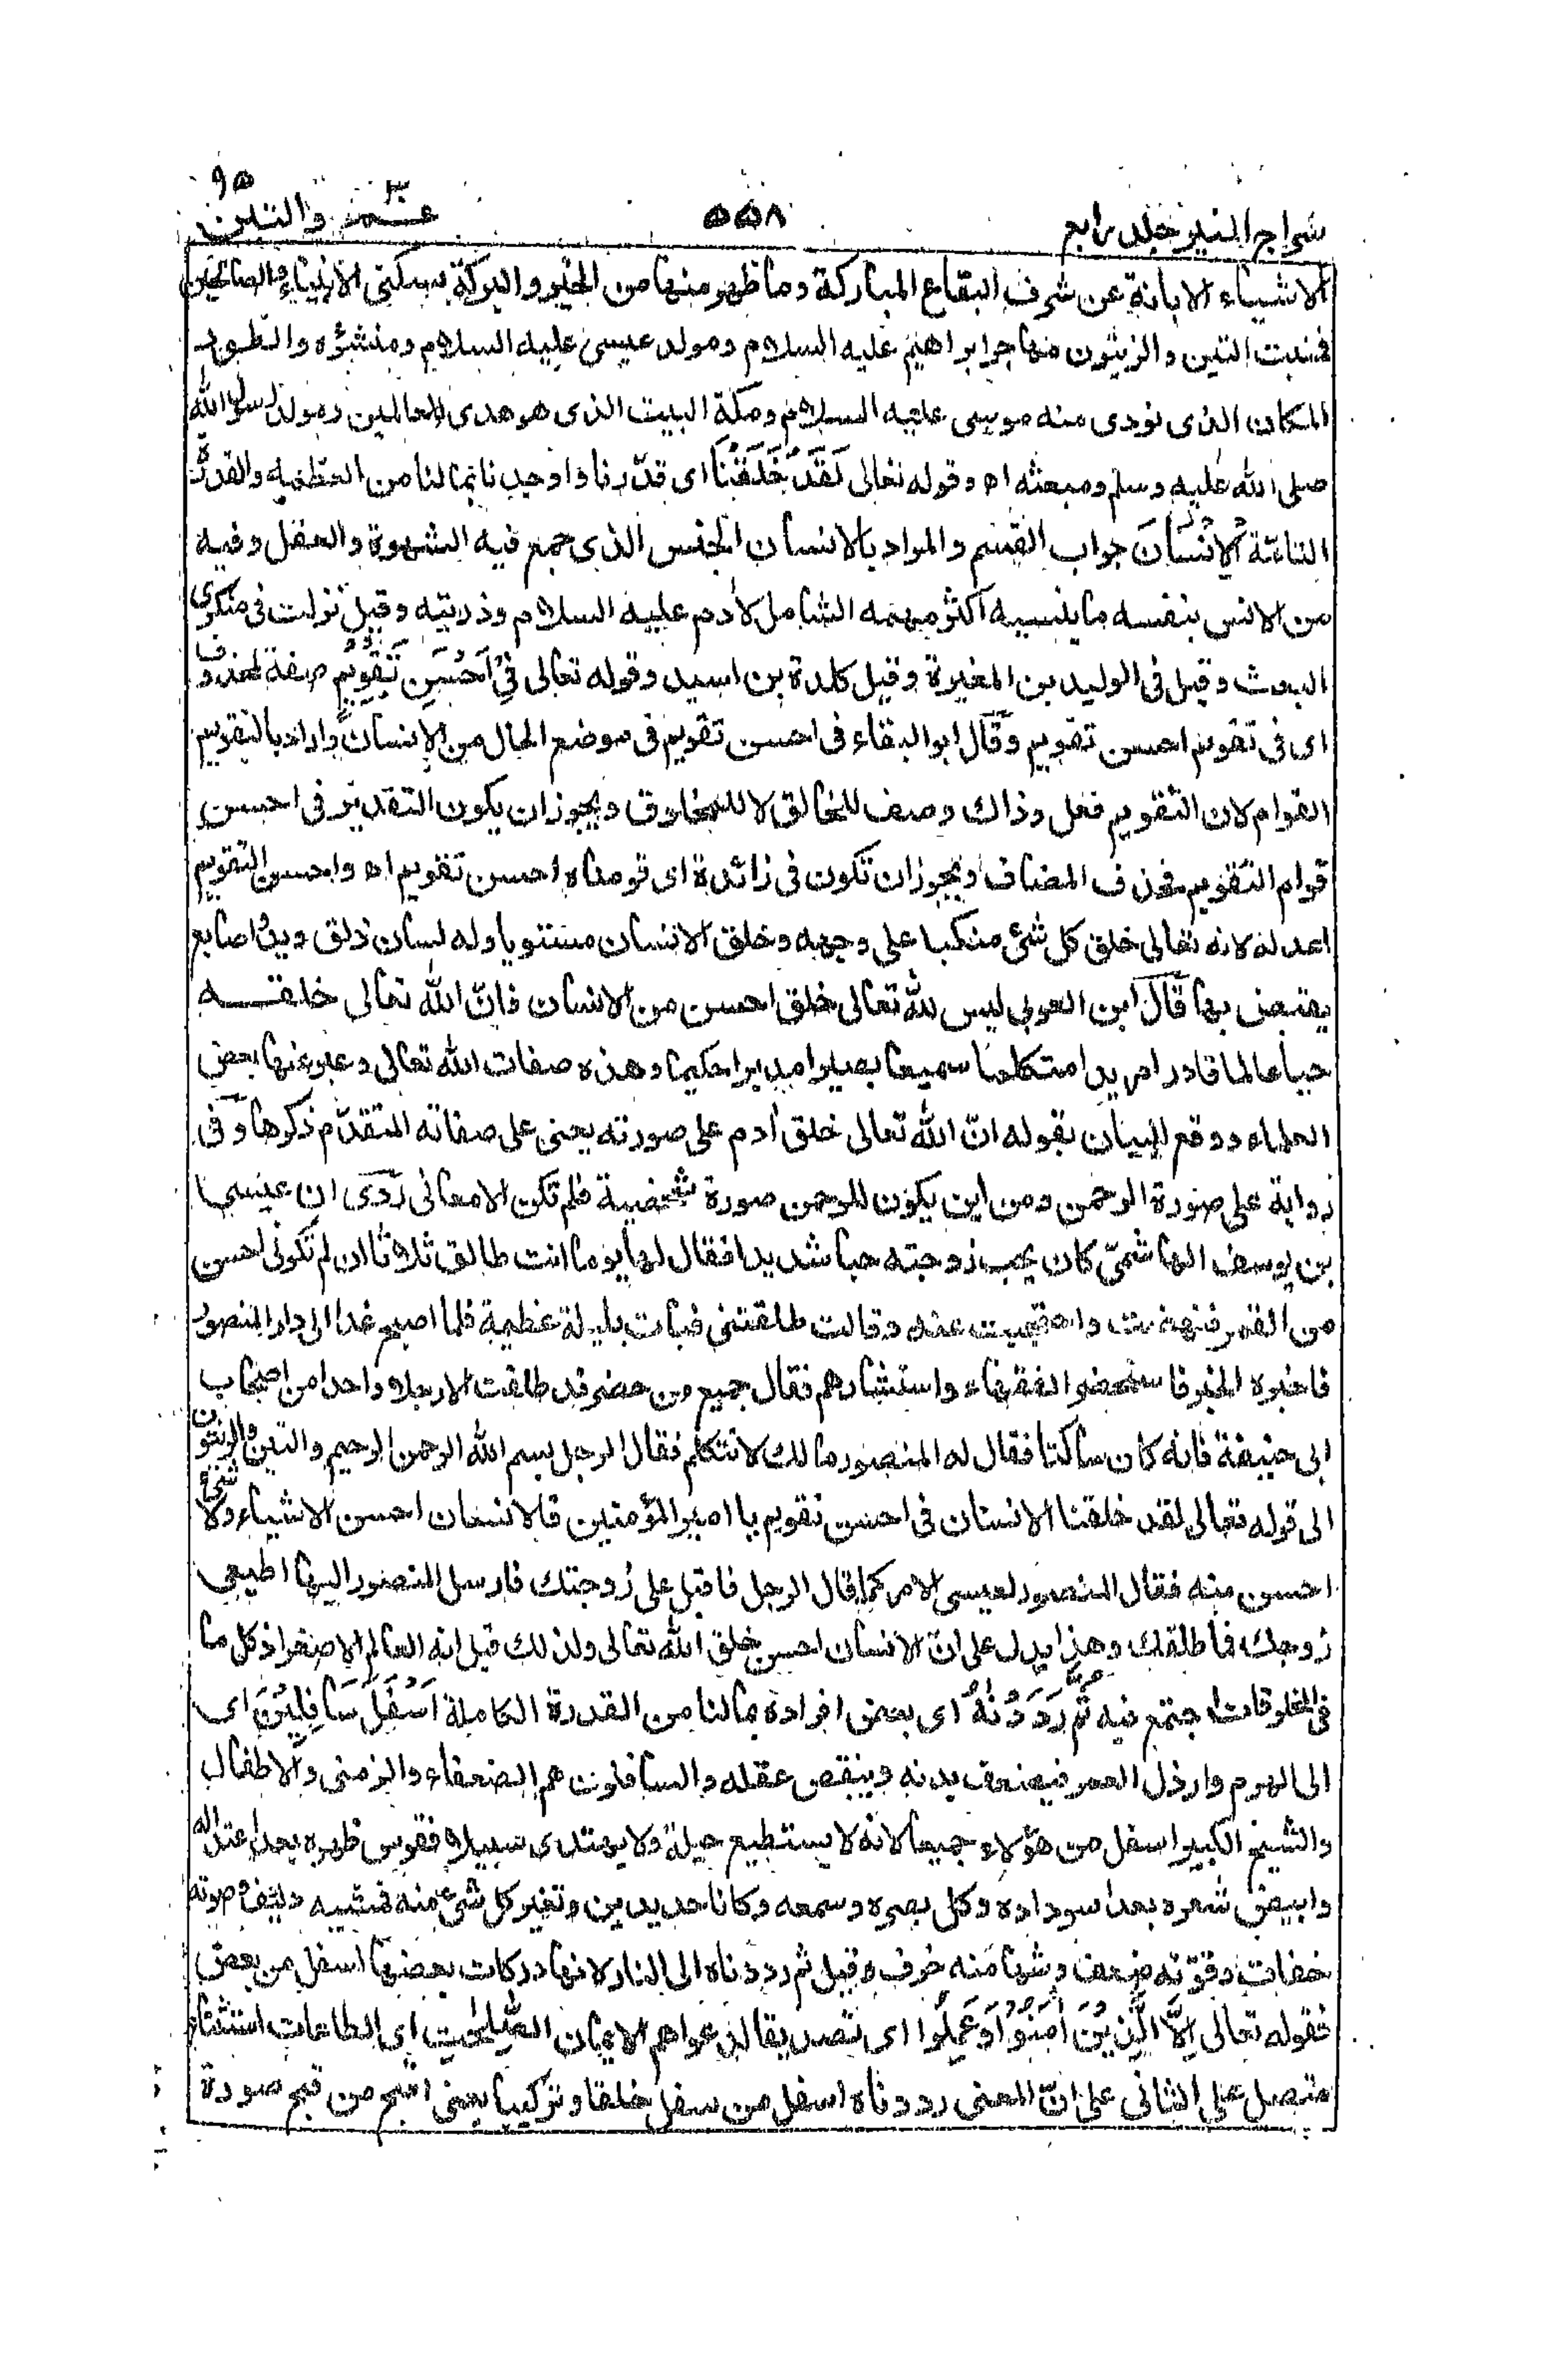 سراج المنير جلد رابع
٥٥٨
عمّ ٣٠ والتين
٩٥
الاشياء الابانة عن شرف البقاع المباركة وما ظهر منها من الخير والبركة بسكنى الانبياء والصالحين
فمنبت التين والزيتون مهاجر ابراهيم عليه السلام ومولد عيسى عليه السلام ومنشؤه والطور
المكان الذى نودى منه موسى عليه السلام ومكة البيت الذى هو هدى للعالمين ومولد رسول الله
صلى الله عليه وسلم ومبعثه اه وقوله تعالى لَقَدْ خَلَقْنَا اى قدّرنا واوجدنا بما لنا من العظمة والقدرة
التامّة الْاِنْسَانَ جواب القسم والمراد بالانسان الجنس الذى جمع فيه الشهوة والعقل وفيه
من الانس بنفسه ما ينسيه اكثر مهمه الشامل لآدم عليه السلام وذريته وقيل نزلت فى منكرى
البعث وقيل فى الوليد بن المغيرة وقيل كلدة بن اسيد وقوله تعالى فِىْ اَحْسَنِ تَقْوِيْمٍ صفة لمحذوف
اى فى تقويم احسن تقويم وقال ابو البقاء فى احسن تقويم فى موضع الحال من الانسان واراد بالتقويم
القوام لان التقويم فعل وذاك وصف للخالق لا للمخلوق ويجوز ان يكون التقدير فى احسن
قوام التقويم فحذف المضاف ويجوز ان تكون فى زائدة اى قومناه احسن تقويم اه واحسن التقويم
اعدله لانه تعالى خلق كل شئ منكبا على وجهه وخلق الانسان مستويا وله لسان ذلق ويد واصابع
يقبض بها قال ابن العربى ليس لله تعالى خلق احسن من الانسان فانّ الله تعالى خلقـــه
حيا عالما قادرا مريدا متكلما سميعا بصيرا مدبرا حكيما وهذه صفات الله تعالى وعبر عنها بعض
العلماء ووقع البيان بقوله انّ الله تعالى خلق آدم على صورته يعنى على صفاته المتقدّم ذكرها وفى
رواية على صورة الرحمن ومن اين يكون للرحمن صورة شخصية فلم تكن الامعانى روى ان عيسى
بن يوسف الهاشمىّ كان يحب زوجته حبا شديدا فقال لها يوما انت طالق ثلاثا ان لم تكونى احسن
من القمر فنهضت واحتجبت عنه وقالت طلقتنى فبات بليلة عظيمة فلما اصبح غدا الى دار المنصور
فاخبره الخبر فاستحضر الفقهاء واستشارهم فقال جميع من حضر قد طلقت الا رجلا واحدا من اصحاب
ابى حنيفة فانه كان ساكتا فقال له المنصور ما لك لا تتكلم فقال الرجل بسم الله الرحمن الرحيم والتين والزيتون
الى قوله تعالى لقد خلقنا الانسان فى احسن تقويم يا امير المؤمنين فالانسان احسن الاشياء ولا شئ
احسن منه فقال المنصور لعيسى الامر كما قال الرجل فاقبل على زوجتك فارسل المنصور اليها اطيعى
زوجك فما طلقك وهذا يدل على انّ الانسان احسن خلق الله تعالى ولذلك قيل انه العالم الاصغر اذ كل ما
فى المخلوقات اجتمع فيه ثُمَّ رَدَدْنٰهُ اى بعض افراده بما لنا من القدرة الكاملة اَسْفَلَ سَافِلِيْنَ اى
الى الهرم وارذل العمر فيضعف بدنه وينقص عقله والسافلون هم الضعفاء والزمنى والاطفال
والشيخ الكبير اسفل من هؤلاء جميعا لانه لا يستطيع حيلة ولا يهتدى سبيلا فقوس ظهره بعد اعتداله
وابيض شعره بعد سواده وكل بصره وسمعه وكانا حديدين وتغير كل شئ منه فمشيه دليف وصوته
خفات وقوّته ضعف وشهامته خرف وقيل ثم رددناه الى النار لانها دركات بعضها اسفل من بعض
فقوله تعالى اِلَّا الَّذِيْنَ اٰمَنُوْا وَعَمِلُوا اى تصديقا لدعواهم الايمان الصّٰلِحٰتِ اى الطاعات استثناء
متصل على الثانى على انّ المعنى رددناه اسفل من سفل خلقا وتركيبا يعنى اقبح من قبح صورة